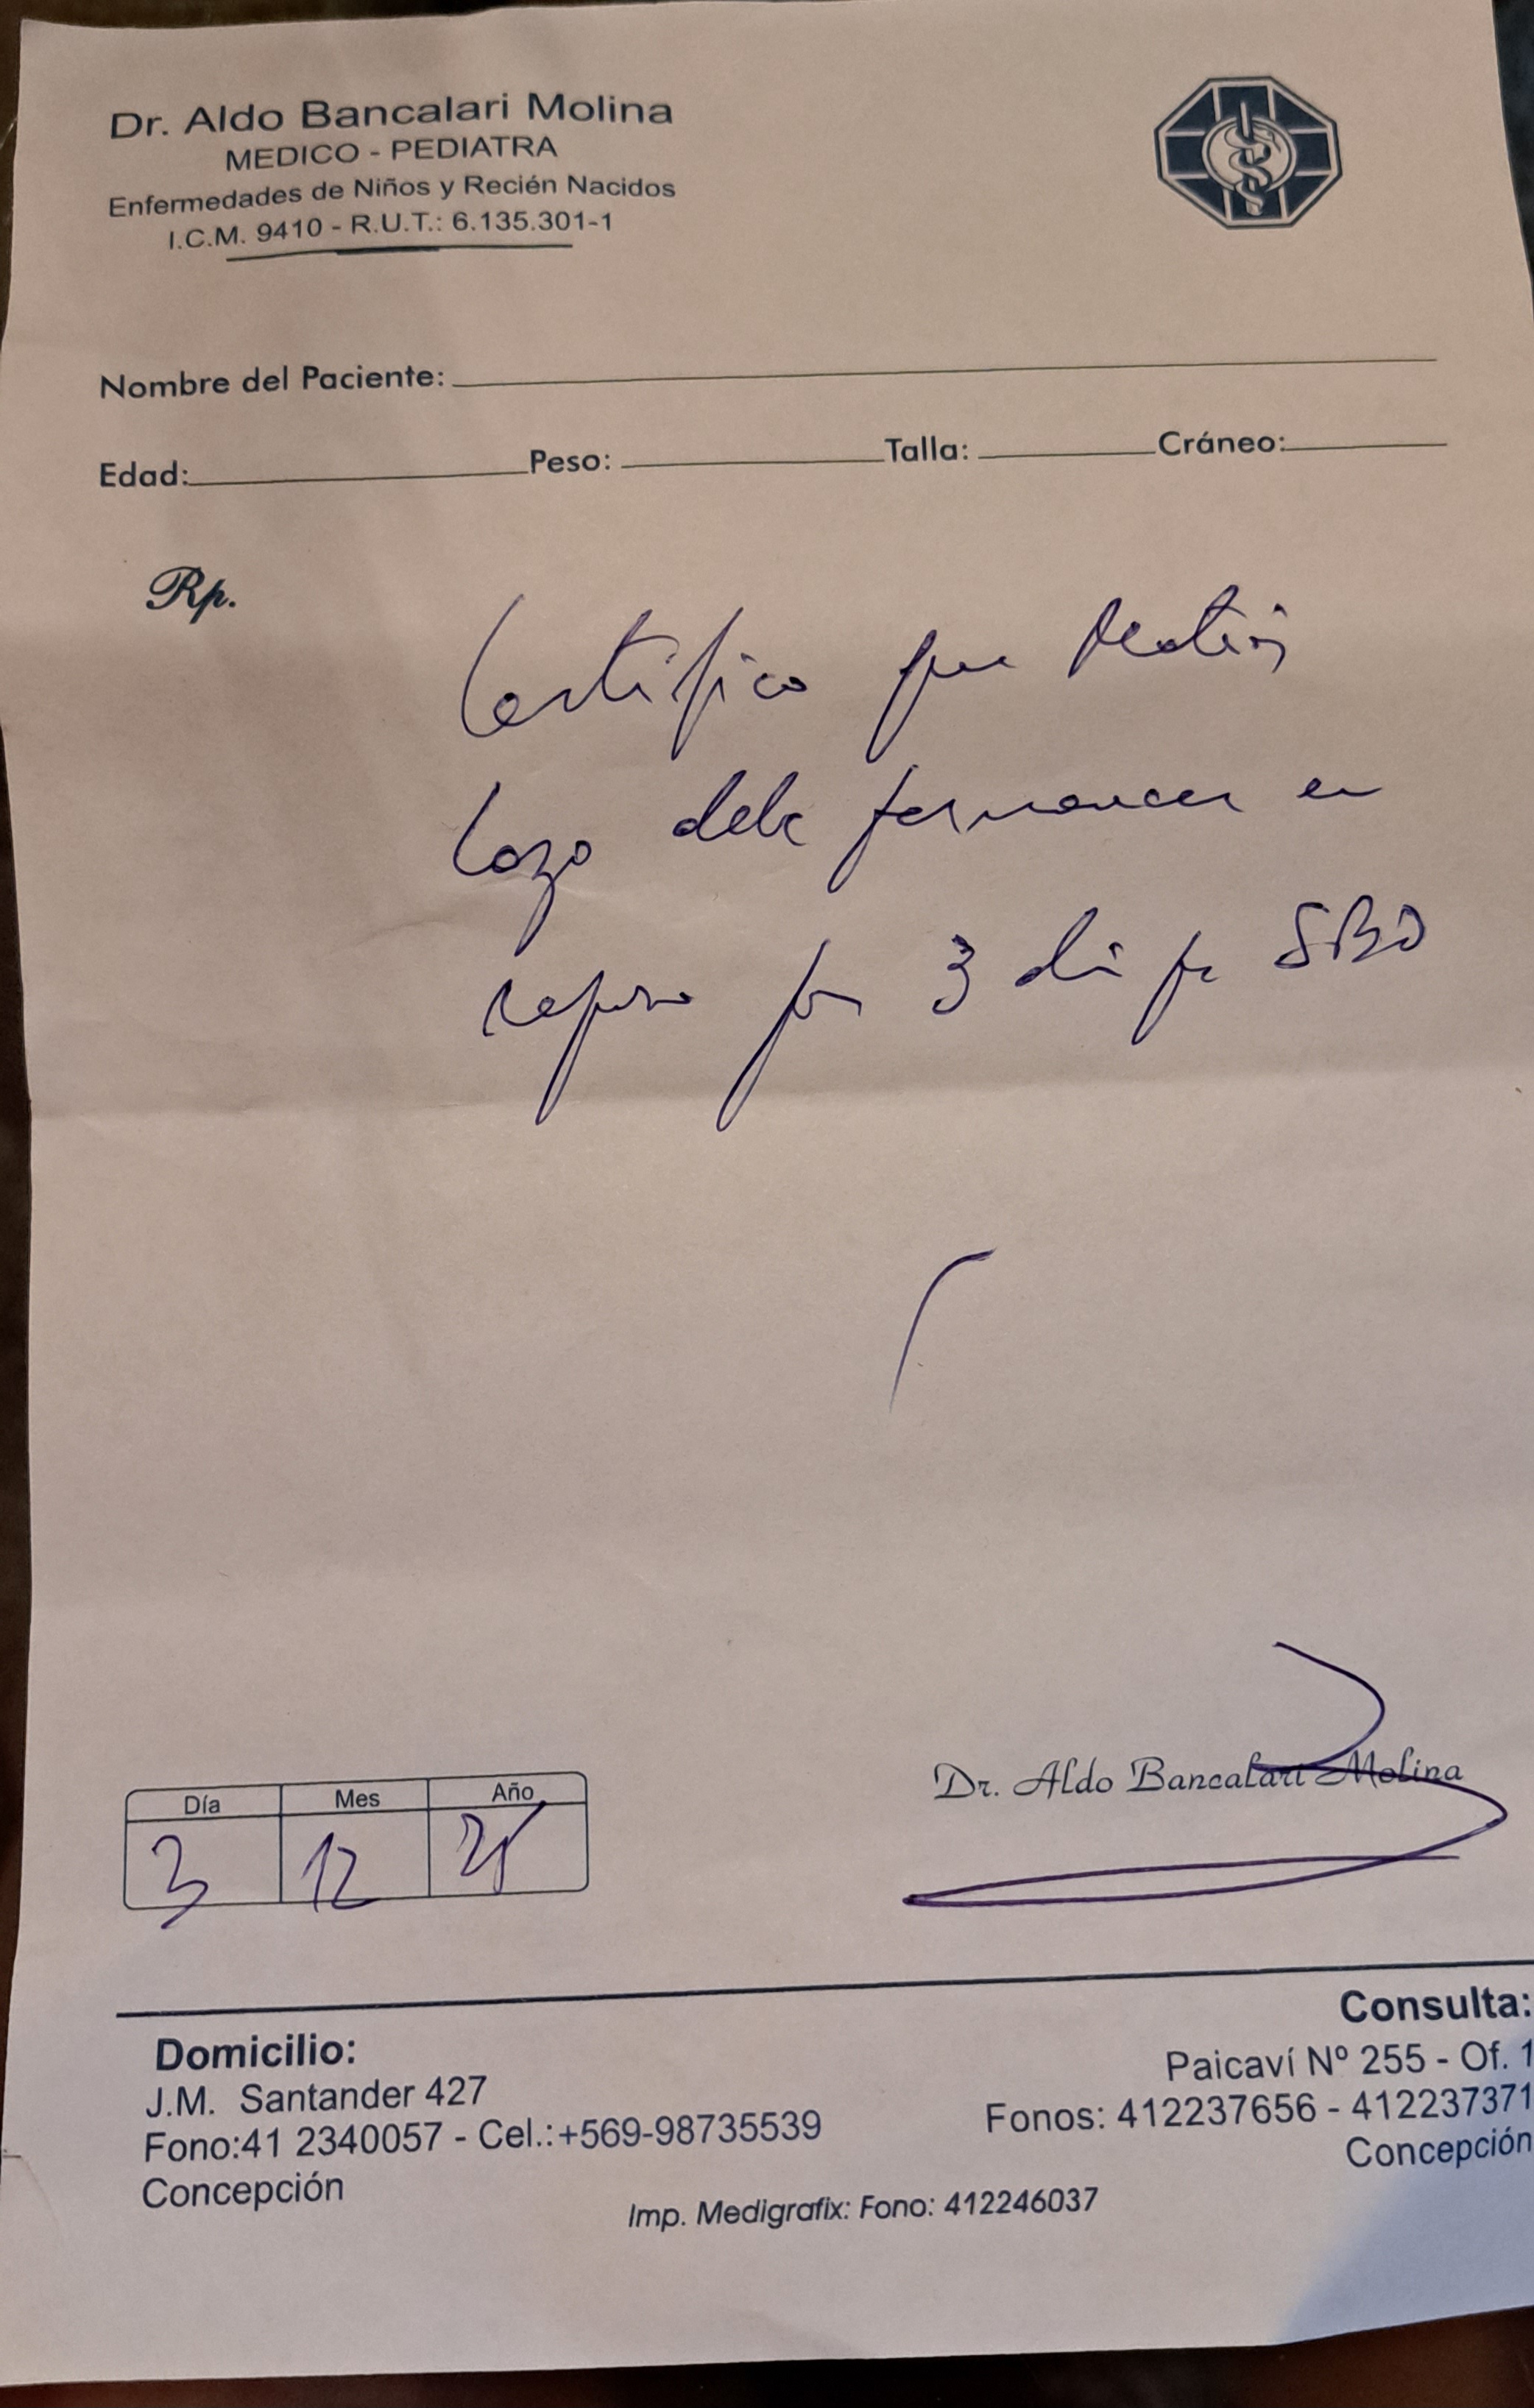 Dr. Aldo Bancalari Molina
MEDICO - PEDIATRA
Enfermedades de Niños y Recién Nacidos
I.C.M. 9410 - R.U.T.: 6.135.301-1
Nombre del Paciente:
Edad: Peso: Talla: Cráneo:
Rp.
Certifico que Matías
Lazo debe permanecer en
reposo por 3 día por SBO
Día Mes Año
3 12 25
Dr. Aldo Bancalari Molina
Consulta:
Domicilio:
Paicaví Nº 255 - Of. 1
J.M. Santander 427
Fonos: 412237656 - 412237371
Fono:41 2340057 - Cel.:+569-98735539
Concepción
Concepción
Imp. Medigrafix: Fono: 412246037